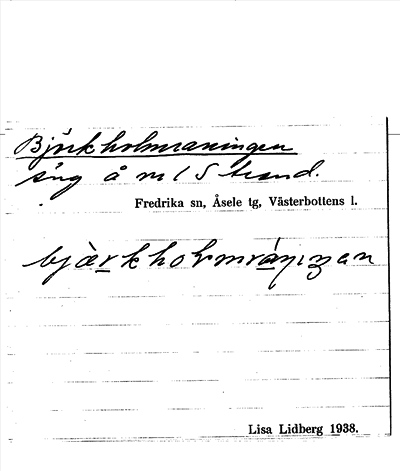 Björkholmraningen
slåg å m l S strand.
Fredrika sn, Åsele tg, Västerbottens l.
bjàrkholmrániŋan
Lisa Lidberg 1938.